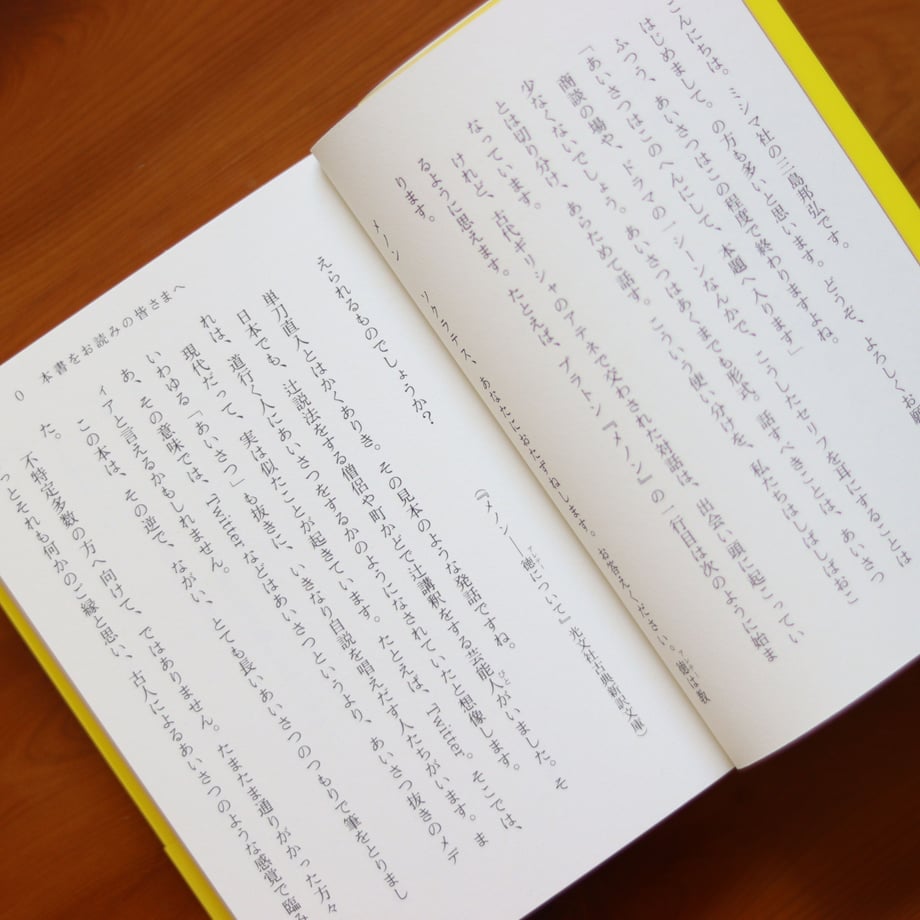 こんにちは。ミシマ社の三島邦弘です。どうぞ、よろしくお願
はじめまして。の方も多いと思います。
ふつう、あいさつはこの程度で終わりますよね。
「あいさつはこのへんにして、本題へ入ります」
商談の場や、ドラマの一シーンなんかで、こうしたセリフを耳にすることは
少なくないでしょう。あいさつはあくまでも形式。話すべきことは、あいさつ
とは切り分け、あらためて話す。こういう使い分けを、私たちはしばしばおこ
なっています。
けれど、古代ギリシャのアテネで交わされた対話は、出会い頭に起こってい
るように思えます。たとえば、プラトン『メノン』の一行目は次のように始ま
ります。
メノン ソクラテス、あなたにおたずねします。お答えください。徳は教
えられるものでしょうか？
（『メノン―徳について』光文社古典新訳文庫）
単刀直入とはかくありき。その見本のような発話ですね。
日本でも、辻説法をする僧侶や町かどで辻講釈をする芸能人がいました。そ
れは、道行く人にあいさつをするかのようになされていたと想像します。
現代だって、実は似たことが起きています。たとえば、Twitter。そこでは、
いわゆる「あいさつ」も抜きに、いきなり自説を唱えだす人たちがいます。ま
あ、その意味では、Twitterなどはあいさつというより、あいさつ抜きのメデ
ィアと言えるかもしれません。
この本は、その逆で、ながい、とても長いあいさつのつもりで筆をとりまし
た。
不特定多数の方へ向けて、ではありません。たまたま通りがかった方々
っとそれも何かのご縁と思い、古人によるあいさつのような感覚で臨み
0 本書をお読みの皆さまへ